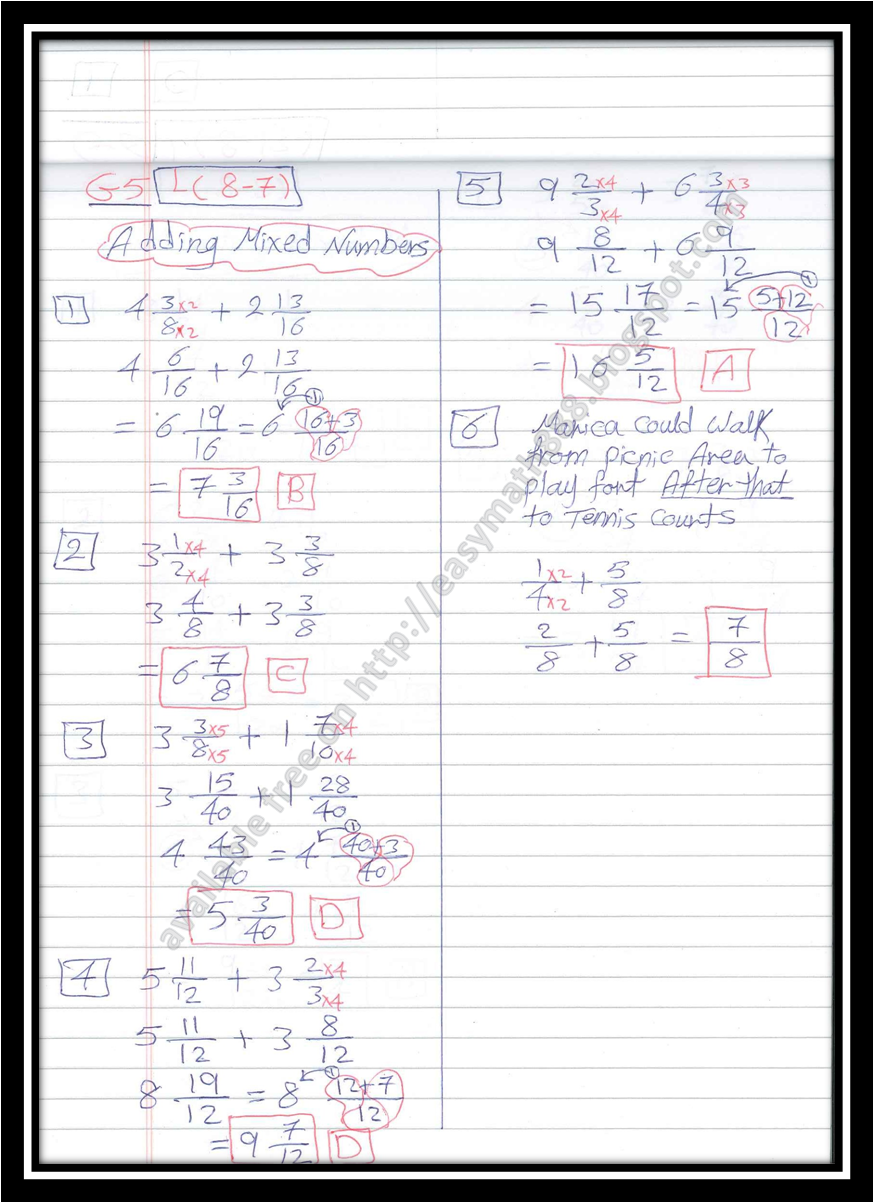 G-5 L(8-7)
Adding Mixed Numbers
1
4 3×2/8×2 + 2 13/16
4 6/16 + 2 13/16
= 6 19/16 = 6 16+3/16
1
= 7 3/16 B
2
3 1×4/2×4 + 3 3/8
3 4/8 + 3 3/8
= 6 7/8 C
3
3 3×5/8×5 + 1 7×4/10×4
3 15/40 + 1 28/40
4 43/40 = 4 40+3/40
1
= 5 3/40 D
4
5 11/12 + 3 2×4/3×4
5 11/12 + 3 8/12
8 19/12 = 8 12+7/12
1
= 9 7/12 D
5
9 2×4/3×4 + 6 3×3/4×3
9 8/12 + 6 9/12
= 15 17/12 = 15 5+12/12
1
= 16 5/12 A
6
Manica could walk
from picnic Area to
play font After that
to Tennis Counts
1×2/4×2 + 5/8
2/8 + 5/8 = 7/8
available free on http://easymath888.blogspot.com